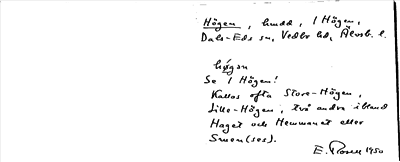 Högen, hmdd, 1 Högen,
Dals-Eds sn, Vedbo hd, Älvsb. l.
høgən
Se 1 Högen!
Kallas ofta Store-Högen,
Lille-Högen, två andra ibland
Haget och Hemmanet eller
E. Rosell 1950